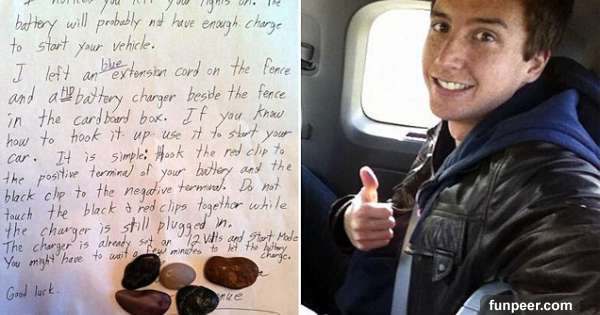 I noticed you left your lights on. The
battery will probably not have enough charge
to start your vehicle.
I left an blue extension cord on the fence
and a battery charger beside the fence
in the cardboard box. If you know
how to hook it up use it to start your
car. It is simple: Hook the red clip to
the positive terminal of your battery and the
black clip to the negative terminal. Do not
touch the black & red clips together while
the charger is still plugged in.
The charger is already set on 12 Volts and Start Mode
You might have to wait a few minutes to let the battery
charge.
Good luck.
nue
funpeer.com